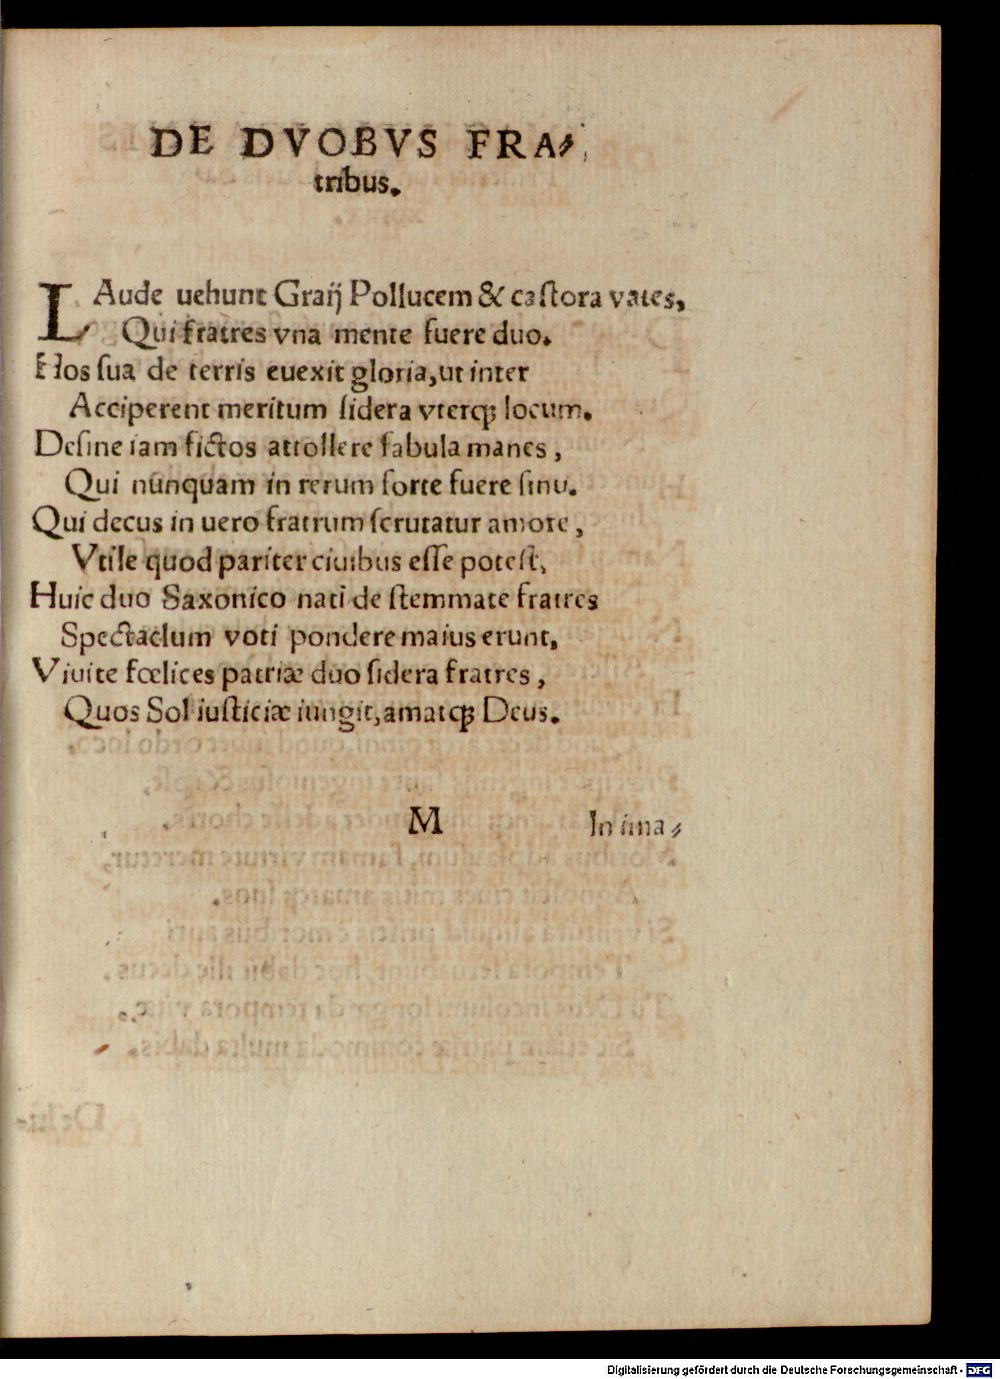 DE DVOBVS FRA⸗
tribus.
LAude uehunt Graij Pollucem & castora vates,
Qui fratres vna mente fuere duo.
Hos sua de terris euexit gloria, ut inter
Acciperent meritum sidera vterq; locum.
Desine iam fictos attollere fabula manes,
Qui nunquam in rerum sorte fuere sinu.
Qui decus in uero fratrum scrutatur amore,
Vtile quod pariter ciuibus esse potest,
Huic duo Saxonico nati de stemmate fratres
Spectaclum voti pondere maius erunt,
Viuite fœlices patriæ duo sidera fratres,
Quos Sol iusticiæ iungit, amatq; Deus.
M
In ima⸗
Digitalisierung gefördert durch die Deutsche Forschungsgemeinschaft - DFG